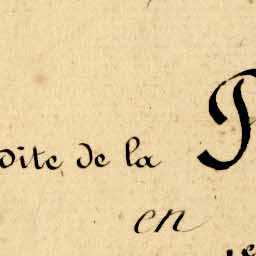 dite de la P
en